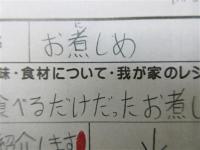 に
お煮しめ
味・食材について・我が家のレシ
食べるだけだったお煮し
紹介します